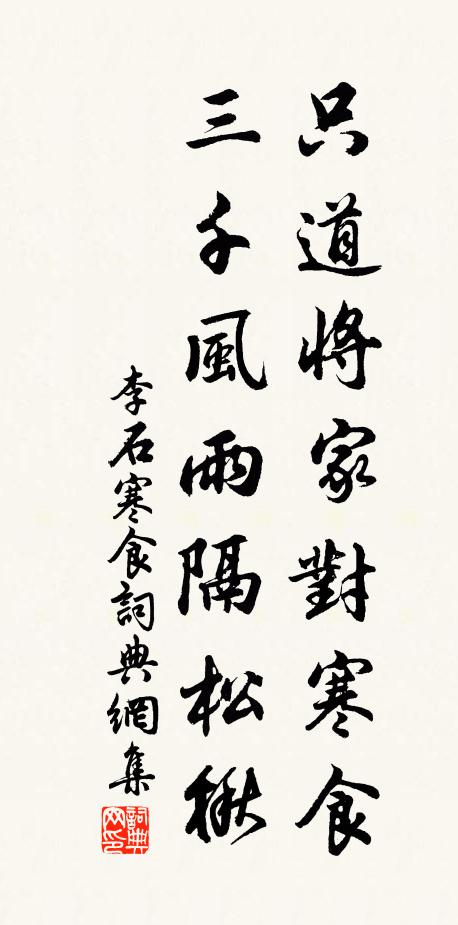 只道將家對寒食
三千風雨隔松楸
李石寒食詞典網集
詞典网印